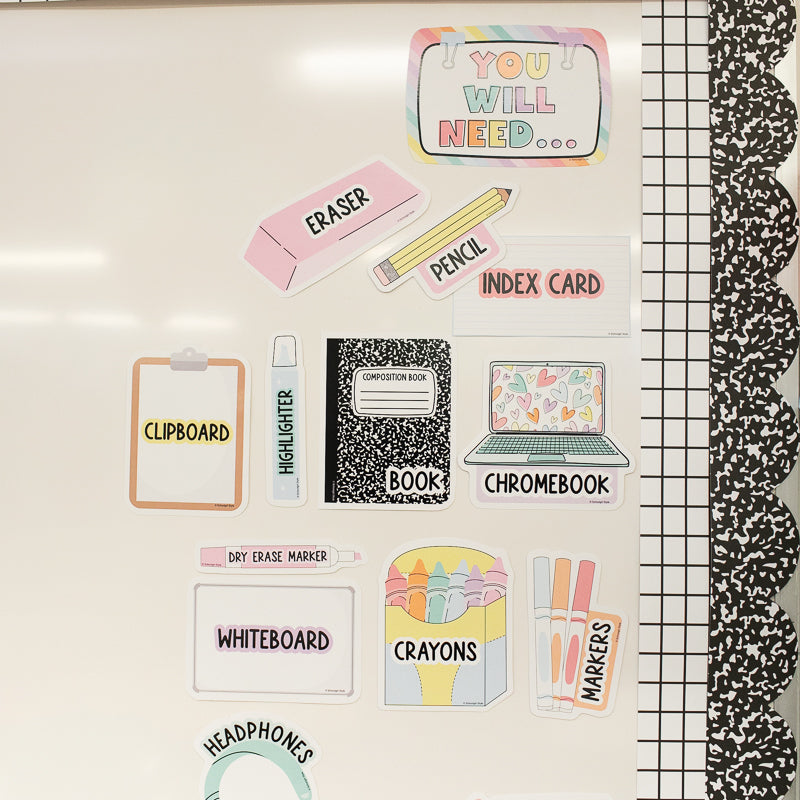 YOU
WILL
NEED...
ERASER
PENCIL
INDEX CARD
CLIPBOARD
HIGHLIGHTER
COMPOSITION BOOK
BOOK
CHROMEBOOK
DRY ERASE MARKER
WHITEBOARD
CRAYONS
MARKERS
HEADPHONES